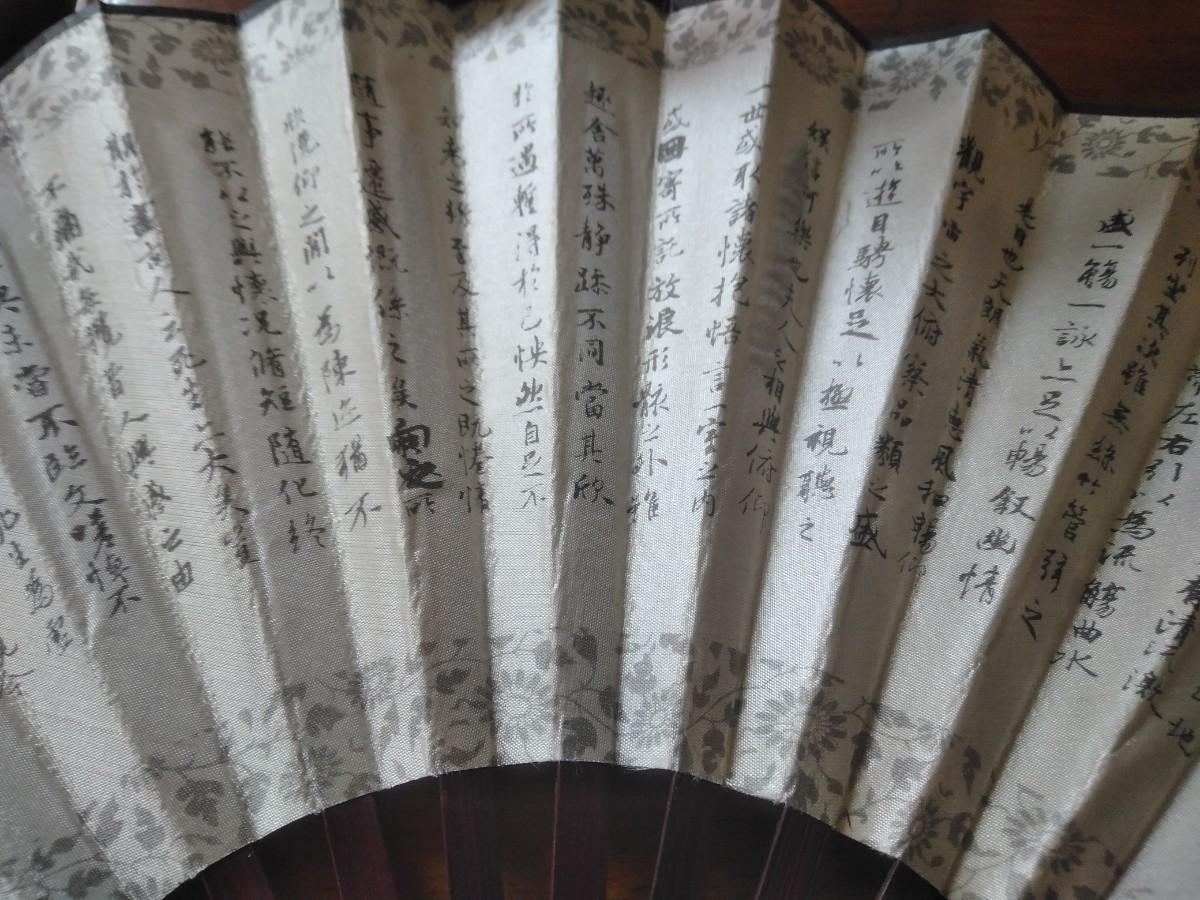 清流激
左右引以為流觴曲水
列坐其次雖無絲竹管弦之
盛一觴一詠亦足以暢敘幽情
是日也天朗氣清惠風和暢仰
觀宇宙之大俯察品類之盛
所以遊目騁懷足以極視聽之
娛信可樂也夫人之相與俯仰
一世或取諸懷抱悟言一室之內
或因寄所託放浪形骸之外雖
趣舍萬殊靜躁不同當其欣
於所遇暫得於己怏然自足不
知老之將至及其所之既惓情
隨事遷感慨係之矣向之所
欣俛仰之間以為陳迹猶不
能不以之興懷況脩短隨化終
期於盡古人云死生亦大矣豈
不痛哉每攬昔人興感之由
未嘗不臨文嗟悼不